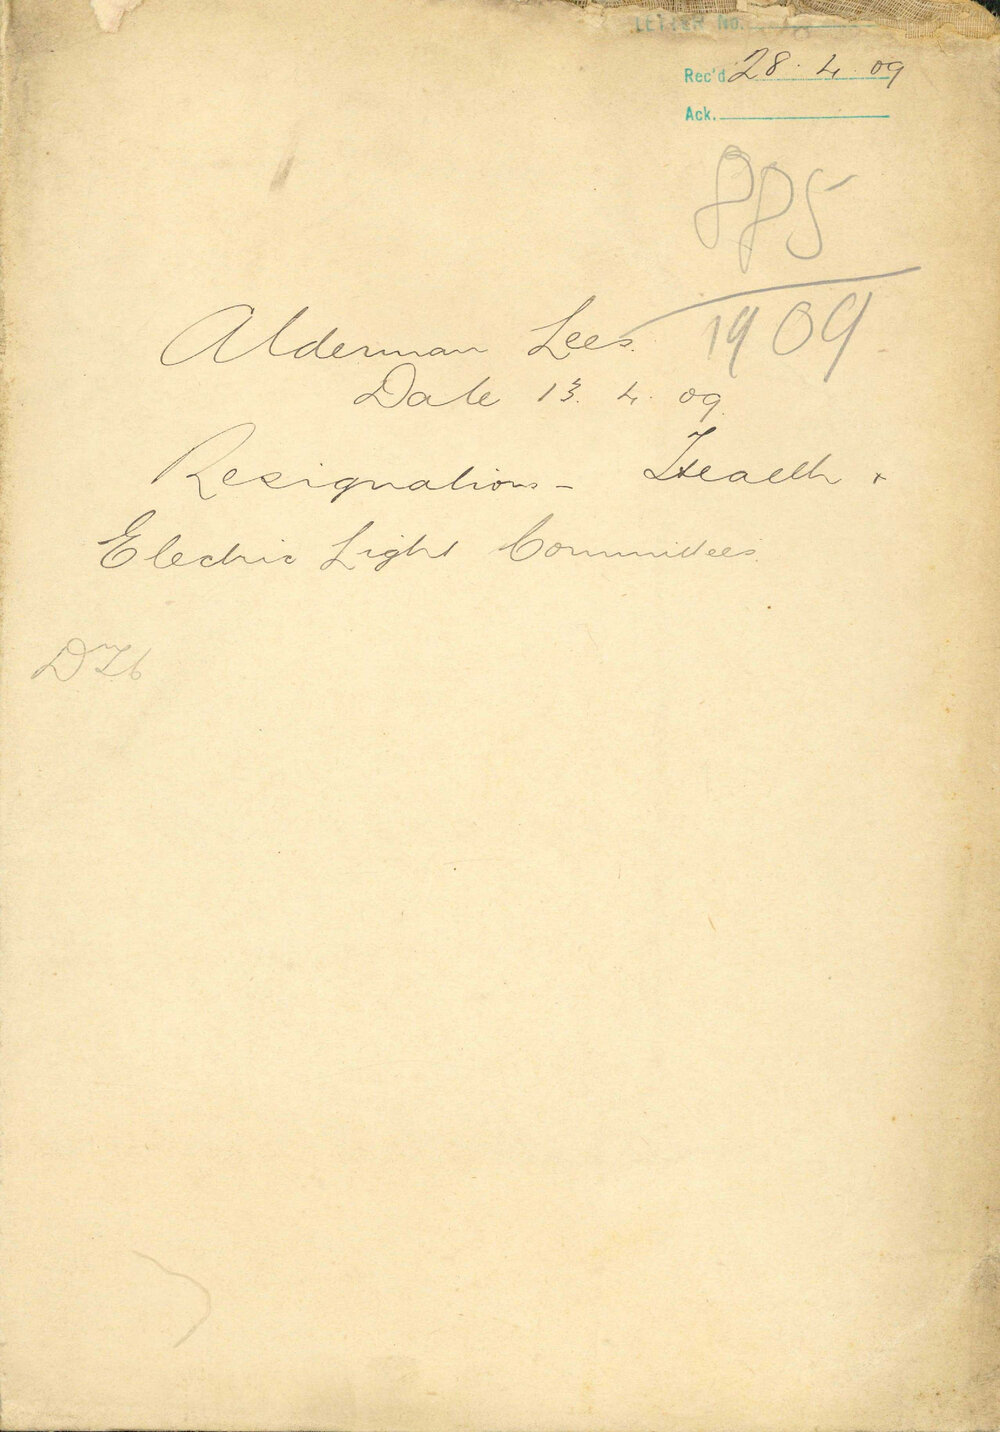 LETTER No.
Rec'd 28. 4. 09
Ack.
885
1909
Alderman Lees.
Date 13. 4. 09.
Resignation - Health +
Electric Light Committees.